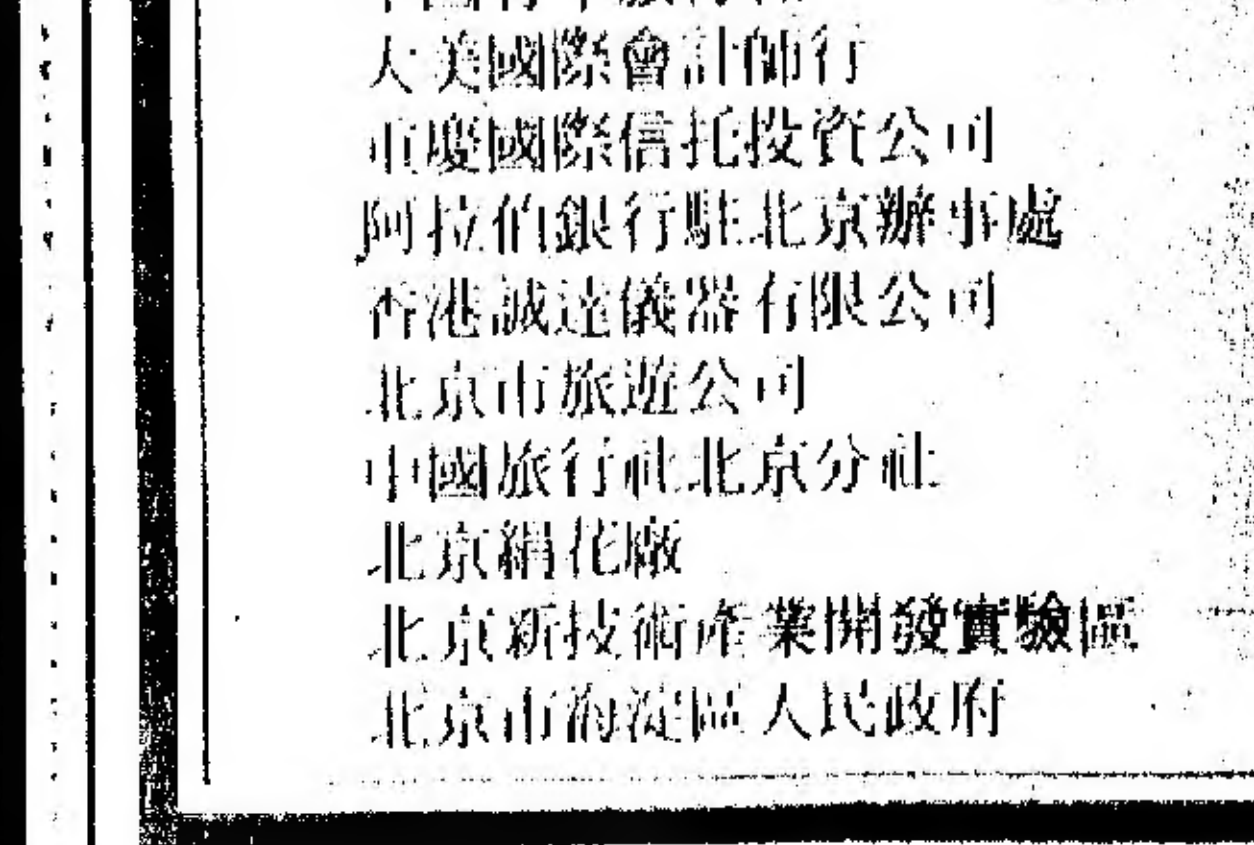 大美國際會計師行
重慶國際信托投資公司
阿拉伯銀行駐北京辦事處
香港誠達儀器有限公司
北京市旅遊公司
中國旅行社北京分社
北京絹花廠
北京新技術產業開發實驗區
北京市海淀區人民政府